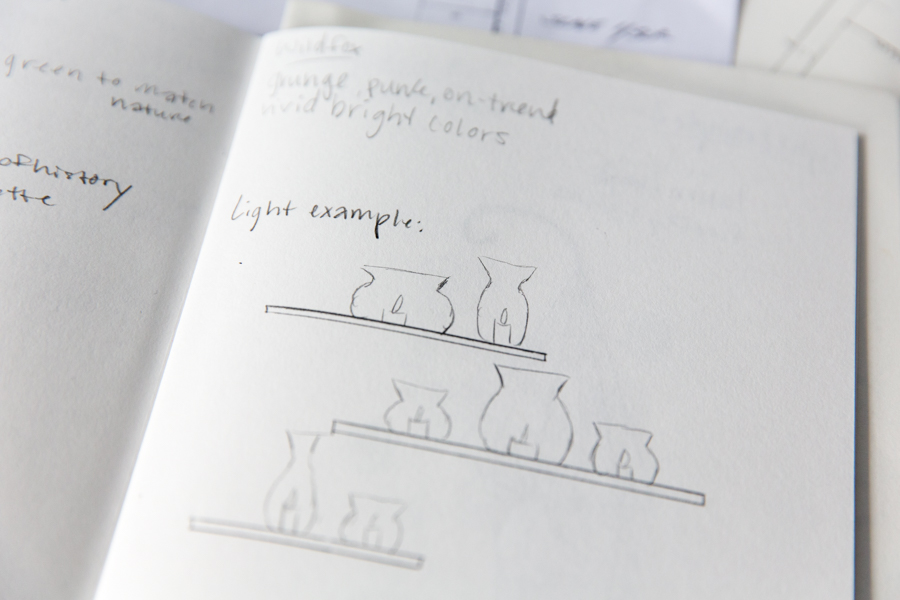 green to match
nature
of history
wildfox
grunge, punk, on-trend
vivid bright colors
light example: